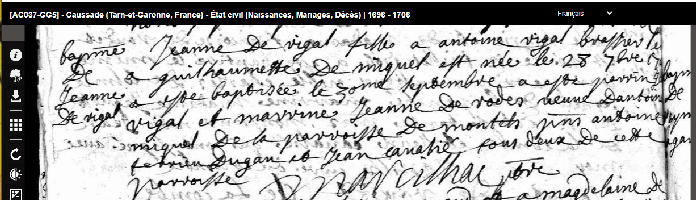 [AC037-GG5] - Caussade (Tarn-et-Garonne, France) - État civil (Naissances, Mariages, Décès) | 1696 - 1706
Français
bapme Jeanne De vigal fille a antoine vigal brassier
De a guilhaumette De miquel est née le 28 7bre
Jeanne a este baptisée le 30me septembre a este parrin
De vigal vigal et marrine Jeanne De rodes veuve Dantoine
miquel De la parroisse De montels pns antoine
terrieu Dugau et Jean canatié tous deux De cette
parroisse ptre
a magdelaine de